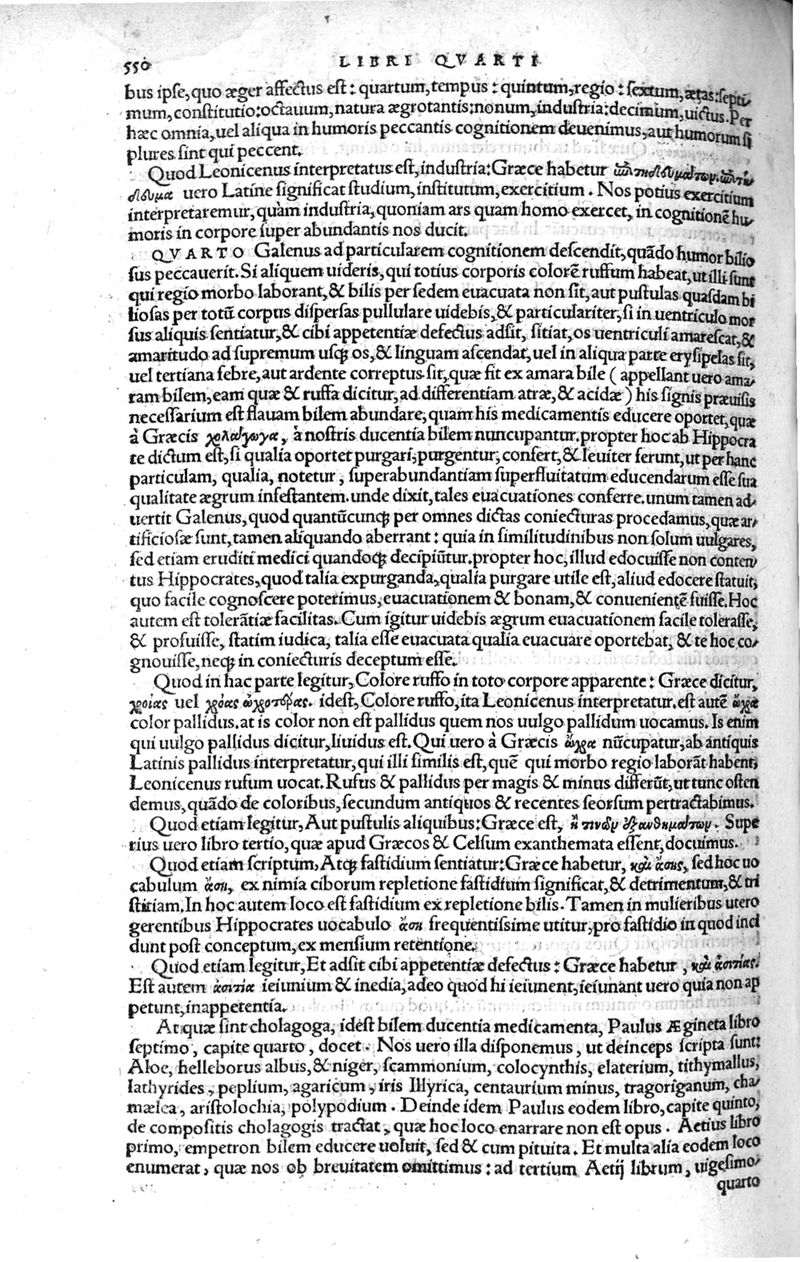 550 LIBRI QVARTI
bus ipse, quo æger affectus est: quartum, tempus: quintum, regio: sextum, ætas: septi
mum, constitutio: octauum, natura ægrotantis: nonum, industria: decimum, uictus. Per
hæc omnia, uel aliqua in humoris peccantis cognitionem deuenimus, aut humorum si
plures sint qui peccent.
Quod Leonicenus interpretatus est, industria: Græce habetur
uero Latine significat studium, institutum, exercitium. Nos potius exercitium
interpretaremur, quàm industria, quoniam ars quam homo exercet, in cognitionẽ hu
moris in corpore super abundantis nos ducit.
QVARTO Galenus ad particularem cognitionem descendit, quãdo humor bilio
sus peccauerit. Si aliquem uideris, qui totius corporis colorẽ ruffum habeat, ut illi sunt
qui regio morbo laborant, & bilis per sedem euacuata non sit, aut pustulas quasdam bi
liosas per totũ corpus dispersas pullulare uidebis, & particulariter, si in uentriculo mor
sus aliquis sentiatur, & cibi appetentiæ defectus adsit, sitiat, os uentriculi amarescat, &
amaritudo ad supremum usq; os, & linguam ascendat, uel in aliqua parte erysipelas sit,
uel tertiana febre, aut ardente correptus sit, quæ fit ex amara bile (appellant uero ama
ram bilem, eam quæ & ruffa dicitur, ad differentiam atræ, & acidæ) his signis præuisis
necessarium est flauam bilem abundare, quam his medicamentis educere oportet, quæ
à Græcis χολαγωγα, à nostris ducentia bilem nuncupantur. propter hoc ab Hippocra
te dictum est, si qualia oportet purgari, purgentur, confert, & leuiter ferunt, ut per hanc
particulam, qualia, notetur, superabundantiam superfluitatum educendarum esse sua
qualitate ægrum infestantem. unde dixit, tales euacuationes conferre. unum tamen ad
uertit Galenus, quod quantũcunq; per omnes dictas coniecturas procedamus, quæ ar
tificiosæ sunt, tamen aliquando aberrant: quia in similitudinibus non solum uulgares,
sed etiam eruditi medici quandoq; decipiũtur. propter hoc, illud edocuisse non conten
tus Hippocrates, quod talia expurganda, qualia purgare utile est, aliud edocere statuit,
quo facile cognoscere poterimus, euacuationem & bonam, & conuenientẽ fuisse. Hoc
autem est tolerãtiæ facilitas. Cum igitur uidebis ægrum euacuationem facile tolerasse,
& profuisse, statim iudica, talia esse euacuata qualia euacuare oportebat, & te hoc co
gnouisse, neq; in coniecturis deceptum esse.
Quod in hac parte legitur, Colore ruffo in toto corpore apparente: Græce dicitur,
χροίας uel χρόας ὠχροτέρας. idest, Colore ruffo, ita Leonicenus interpretatur. est autẽ ὤχρα
color pallidus. at is color non est pallidus quem nos uulgo pallidum uocamus. Is enim
qui uulgo pallidus dicitur, liuidus est. Qui uero à Græcis ὤχρα nũcupatur, ab antiquis
Latinis pallidus interpretatur, qui illi similis est, quẽ qui morbo regio laborãt habent,
Leonicenus rufum uocat. Rufus & pallidus per magis & minus differũt, ut tunc osten
demus, quãdo de coloribus, secundum antiquos & recentes seorsum pertractabimus.
Quod etiam legitur, Aut pustulis aliquibus: Græce est, ἢ τινῶν ἐξανθημάτων. Supe
rius uero libro tertio, quæ apud Græcos & Celsum exanthemata essent, docuimus.
Quod etiam scriptum, Atq; fastidium sentiatur: Græce habetur, καὶ ἄσης, sed hoc uo
cabulum ἄση, ex nimia ciborum repletione fastidium significat, & detrimentum, & tri
stitiam. In hoc autem loco est fastidium ex repletione bilis. Tamen in mulieribus utero
gerentibus Hippocrates uocabulo ἄση frequentissime utitur, pro fastidio in quod inci
dunt post conceptum, ex mensium retentione.
Quod etiam legitur, Et adsit cibi appetentiæ defectus: Græce habetur, καὶ ἀσιτίας.
Est autem ἀσιτία ieiunium & inedia, adeo quod hi ieiunent, ieiunant uero quia non ap
petunt, inappetentia.
At quæ sint cholagoga, idest bilem ducentia medicamenta, Paulus Ægineta libro
septimo, capite quarto, docet. Nos uero illa disponemus, ut deinceps scripta sunt:
Aloe, helleborus albus, & niger, scammonium, colocynthis, elaterium, tithymallus,
lathyrides, peplium, agaricum, iris Illyrica, centaurium minus, tragoriganum, cha
mælea, aristolochia, polypodium. Deinde idem Paulus eodem libro, capite quinto,
de compositis cholagogis tractat, quæ hoc loco enarrare non est opus. Aetius libro
primo, empetron bilem educere uoluit, sed & cum pituita. Et multa alia eodem loco
enumerat, quæ nos ob breuitatem omittimus: ad tertium Aetij librum, uigesimo
quarto